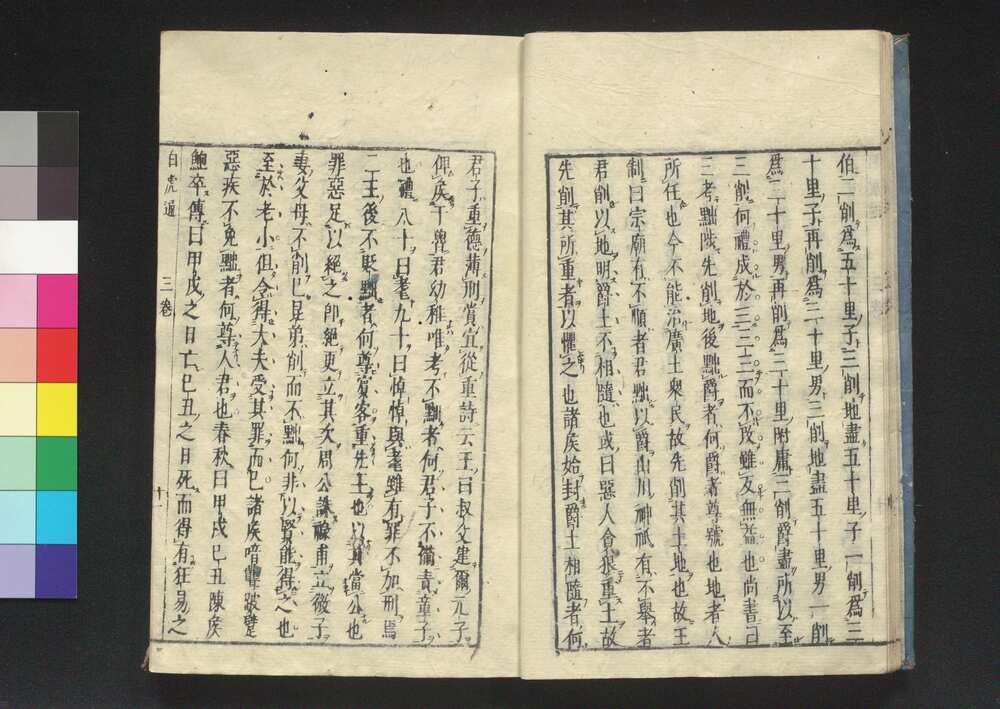 伯二削爲五十里子三削地盡五十里子一削爲三
十里子再削爲三十里男三削地盡五十里男一削
爲三十里男再削爲三十里附庸三削爵盡所以至
三削何禮成於三三而不改雖反無益也尚書曰
三考黜陟先削地後黜爵者何爵者尊號也地者人
所任也今不能治廣土衆民故先削其土地也故王
制曰宗廟有不順者君黜以爵山川神祇有不舉者
君削以地明爵土不相隨也或曰惡人貪狠重土故
先削其所重者以懼之也諸侯始封爵土相隨者何
君子重德薄刑賞宜從重詩云王曰叔父建爾元子
俾侯于魯君幼稚唯考不黜者何君子不備責童子
也禮八十曰耄九十曰悼悼與耄雖有罪不加刑焉
二王後不貶黜者何尊賓客重先王也以其當公也
罪惡足以絕之卽絕更立其次周公誅祿甫立微子
妻父母不削已昆弟削而不黜何非以賢能得之也
至於老小但令得大夫受其罪而已諸侯喑聾跛躄
惡疾不免黜者何尊人君也春秋曰甲戌己丑陳侯
鮑卒傳曰甲戌之日亡己丑之日死而得有狂易之
白虎通 三卷 十一